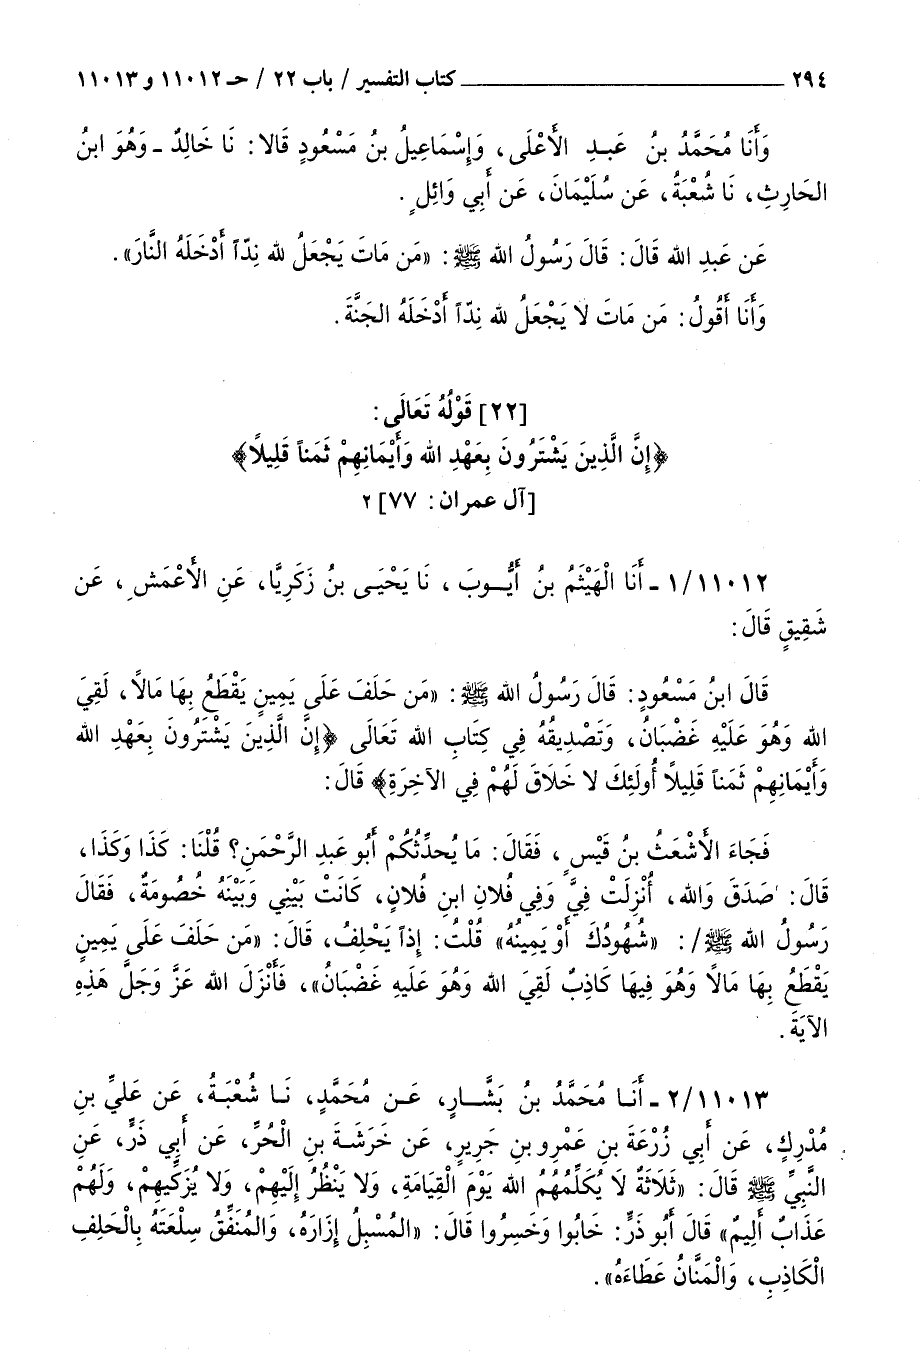 ٢٩٤ ــــــــــــــــــــــــ كتاب التفسير / باب ٢٢ / حـ ١١٠١٢ و ١١٠١٣
وَأَنَا مُحَمَّدُ بنُ عَبدِ الأَعْلَى، وَإِسْمَاعِيلُ بنُ مَسْعُودٍ قَالا: نَا خَالِدٌ ـ وَهُوَ ابنُ
الحَارِثِ، نَا شُعْبَةُ، عَن سُلَيْمَانَ، عَن أَبِي وَائِلٍ.
عَن عَبدِ الله قَالَ: قَالَ رَسُولُ الله ﷺ: «مَن مَاتَ يَجْعَلُ لله نِدّاً أَدْخَلَهُ النَّارَ».
وَأَنَا أَقُولُ: مَن مَاتَ لا يَجْعَلُ لله نِدّاً أَدْخَلَهُ الجَنَّةَ.
[٢٢] قَوْلُهُ تَعَالَى:
﴿إِنَّ الَّذِينَ يَشْتَرُونَ بِعَهْدِ الله وَأَيْمَانِهِمْ ثَمَناً قَلِيلاً﴾
[آل عمران: ٧٧] ٢
١/١١٠١٢ ـ أَنَا الْهَيْثَمُ بنُ أَيُّوبَ، نَا يَحْيَى بنُ زَكَرِيَّا، عَنِ الأَعْمَشِ، عَن
شَقِيقٍ قَالَ:
قَالَ ابنُ مَسْعُودٍ: قَالَ رَسُولُ الله ﷺ: «مَن حَلَفَ عَلَى يَمِينٍ يَقْطَعُ بِهَا مَالاً، لَقِيَ
الله وَهُوَ عَلَيْهِ غَضْبَانُ، وَتَصْدِيقُهُ فِي كِتَابِ الله تَعَالَى ﴿إِنَّ الَّذِينَ يَشْتَرُونَ بِعَهْدِ الله
وَأَيْمَانِهِمْ ثَمَناً قَلِيلاً أُولَئِكَ لا خَلَاقَ لَهُمْ فِي الآخِرَةِ﴾ قَالَ:
فَجَاءَ الأَشْعَثُ بنُ قَيْسٍ، فَقَالَ: مَا يُحدِّثُكُمْ أَبُو عَبدِ الرَّحْمَنِ؟ قُلْنَا: كَذَا وَكَذَا،
قَالَ: صَدَقَ وَالله، أُنْزِلَتْ فِيَّ وَفِي فُلانِ ابنِ فُلانٍ، كَانَتْ بَيْنِي وَبَيْنَهُ خُصُومَةٌ، فَقَالَ
رَسُولُ الله ﷺ/: «شُهُودُكَ أَوْ يَمِينُهُ» قُلْتُ: إِذاً يَحْلِفُ، قَالَ: «مَن حَلَفَ عَلَى يَمِينٍ
يَقْطَعُ بِهَا مَالاً وَهُوَ فِيهَا كَاذِبٌ لَقِيَ الله وَهُوَ عَلَيهِ غَضْبَانُ»، فَأَنْزَلَ الله عَزَّ وَجَلَّ هَذِهِ
الآيَةَ.
٢/١١٠١٣ ـ أَنَا مُحَمَّدُ بنُ بَشَّارٍ، عَن مُحَمَّدٍ، نَا شُعْبَةُ، عَن عَلِيِّ بنِ
مُدْرِكٍ، عَن أَبِي زُرْعَةَ بنِ عَمْرِو بنِ جَرِيرٍ، عَن خَرَشَةَ بنِ الْحُرِّ، عَن أَبِي ذَرٍّ، عَنِ
النَّبِيِّ ﷺ قَالَ: «ثَلاثَةٌ لَا يُكَلِّمُهُمُ الله يَوْمَ الْقِيَامَةِ، وَلا يَنْظُرُ إِلَيْهِمْ، وَلا يُزَكِّيهِمْ، وَلَهُمْ
عَذَابٌ أَلِيمٌ» قَالَ أَبُو ذَرٍّ: خَابُوا وَخَسِرُوا قَالَ: «المُسْبِلُ إِزَارَهُ، وَالمُنَفِّقُ سِلْعَتَهُ بِالْحَلِفِ
الْكَاذِبِ، وَالْمَنَّانُ عَطَاءَهُ».